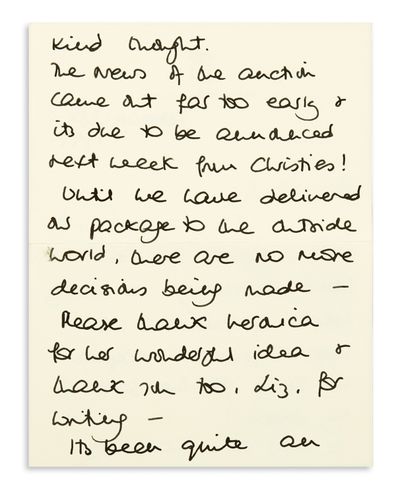 kind thought.
The News of the auction
came out far too early &
its due to be announced
next week from Christies!
Until we have delivered
our package to the outside
world, there are no more
decisions being made –
Please thank Veronica
for her wonderful idea &
thank you too, Liz, for
writing –
Its been quite an